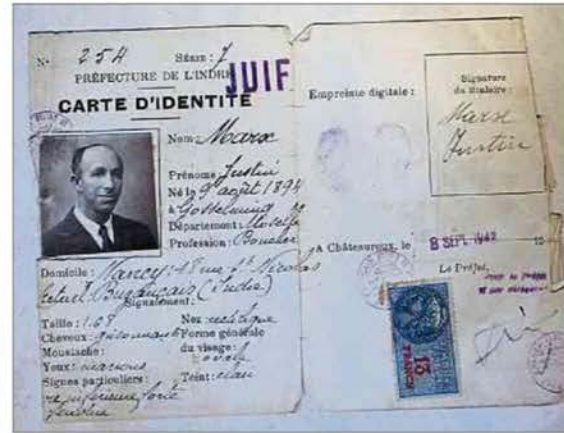 No 254 Série: 7
PRÉFECTURE DE L'INDRE
JUIF
CARTE D'IDENTITÉ
Nom: Marx
Prénom: Justin
Né le 9 août 1894
à Gosselming
Département: Moselle
Profession: Boucher
Domicile: Nancy: 48 rue St Nicolas
actuel Buzançais (Indre)
Signalement:
Taille: 1.68
Cheveux: grisonnants
Moustache:
Yeux: marrons
Signes particuliers:
Nez: rectiligne
Forme générale
du visage:
ovale
Teint: clair
Empreinte digitale:
Signature
du titulaire:
Marx
Justin
A Châteauroux, le 8 SEPT. 1942 19
Le Préfet,
13
FRANCS